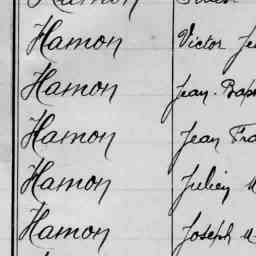 Hamon Victor
Hamon Jean-
Hamon Jean
Hamon Julien
Hamon Joseph